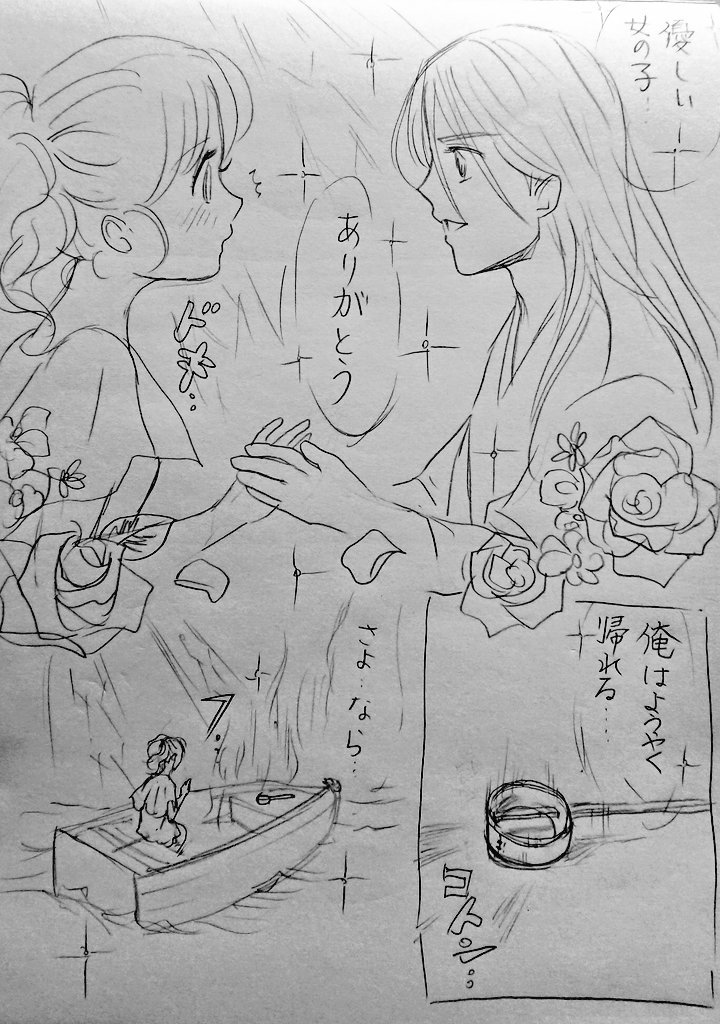 優しい
女の子…
ありがとう
ドキ…
俺はようやく
帰れる…
コトン…
さよ…なら…
フ…